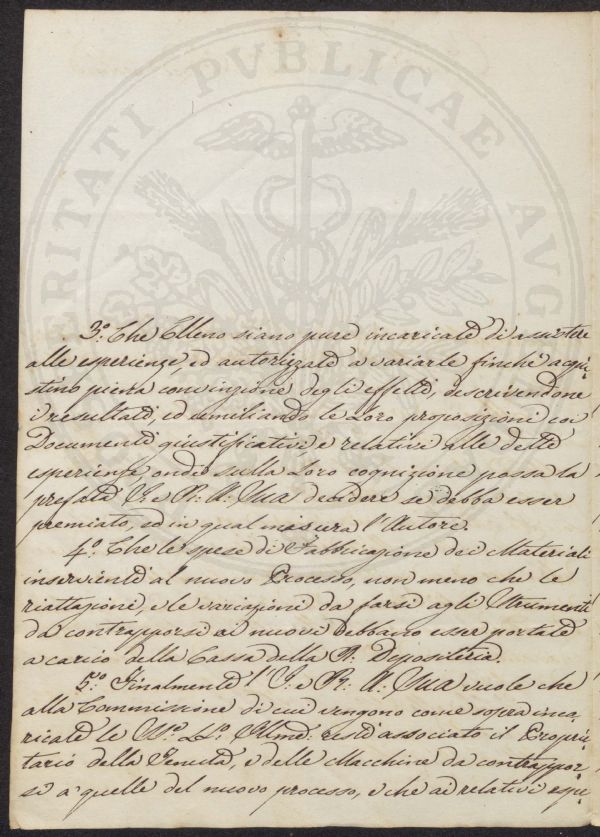 VERITATI PVBLICAE AVG
3.º Che Elleno siano pure incaricate di assistere
alle esperienze, ed autorizzate a variarle finchè acqui-
stino piena convinzione degli effetti, descrivendone
i resultati ed umiliando le Loro proposizioni coi
Documenti giustificativi, e relativi alle dette
esperienze, onde sulla Loro cognizione possa la
prefata I: e R: A: Sua decidere se debba esser
premiato, ed in qual misura l'Autore.
4.º Che le spese di Fabbricazione dei Materiali
inservienti al nuovo Processo, non meno che le
riattazioni, e le variazioni da farsi agli Strumenti
da contrapporsi ai nuovi debbano esser portate
a carico della Cassa della R: Depositeria.
5.º Finalmente l'I: e R: A: Sua vuole che
alla Commissione di cui vengono come sopra inca-
ricate le Illme: resti associato il Proprie-
tario della Tenuta, e delle Macchine da contrappor-
si a quelle del nuovo processo, e che ai relativi espe-